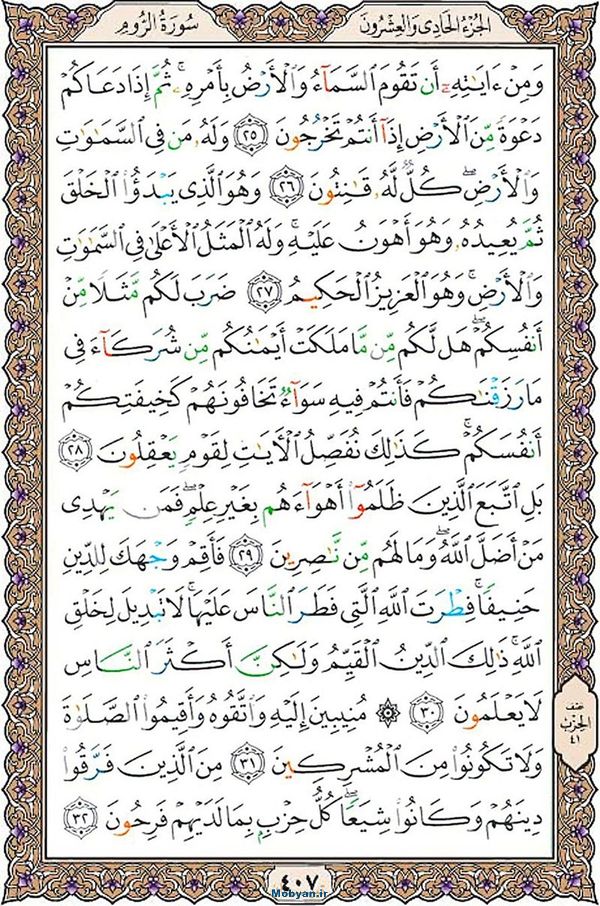 سُورَةُ الرُّومِ
الجُزءُ الحَادِی وَالعِشرُونَ
وَمِنْ ءَايَـٰتِهِۦٓ أَن تَقُومَ ٱلسَّمَآءُ وَٱلْأَرْضُ بِأَمْرِهِۦ ۚ ثُمَّ إِذَا دَعَاكُمْ
دَعْوَةً مِّنَ ٱلْأَرْضِ إِذَآ أَنتُمْ تَخْرُجُونَ ٢٥ وَلَهُۥ مَن فِی ٱلسَّمَـٰوَٰتِ
وَٱلْأَرْضِ ۖ كُلٌّ لَّهُۥ قَـٰنِتُونَ ٢٦ وَهُوَ ٱلَّذِی يَبْدَؤُا۟ ٱلْخَلْقَ
ثُمَّ يُعِيدُهُۥ وَهُوَ أَهْوَنُ عَلَيْهِ ۚ وَلَهُ ٱلْمَثَلُ ٱلْأَعْلَىٰ فِی ٱلسَّمَـٰوَٰتِ
وَٱلْأَرْضِ ۚ وَهُوَ ٱلْعَزِيزُ ٱلْحَكِيمُ ٢٧ ضَرَبَ لَكُم مَّثَلًا مِّنْ
أَنفُسِكُمْ ۖ هَل لَّكُم مِّن مَّا مَلَكَتْ أَيْمَـٰنُكُم مِّن شُرَكَآءَ فِی
مَا رَزَقْنَـٰكُمْ فَأَنتُمْ فِيهِ سَوَآءٌ تَخَافُونَهُمْ كَخِيفَتِكُمْ
أَنفُسَكُمْ ۚ كَذَٰلِكَ نُفَصِّلُ ٱلْآيَـٰتِ لِقَوْمٍ يَعْقِلُونَ ٢٨
بَلِ ٱتَّبَعَ ٱلَّذِينَ ظَلَمُوٓا۟ أَهْوَآءَهُم بِغَيْرِ عِلْمٍ ۖ فَمَن يَهْدِی
مَنْ أَضَلَّ ٱللَّهُ ۖ وَمَا لَهُم مِّن نَّـٰصِرِينَ ٢٩ فَأَقِمْ وَجْهَكَ لِلدِّينِ
حَنِيفًا ۚ فِطْرَتَ ٱللَّهِ ٱلَّتِی فَطَرَ ٱلنَّاسَ عَلَيْهَا ۚ لَا تَبْدِيلَ لِخَلْقِ
ٱللَّهِ ۚ ذَٰلِكَ ٱلدِّينُ ٱلْقَيِّمُ وَلَـٰكِنَّ أَكْثَرَ ٱلنَّاسِ
لَا يَعْلَمُونَ ٣٠ ۞ مُنِيبِينَ إِلَيْهِ وَٱتَّقُوهُ وَأَقِيمُوا۟ ٱلصَّلَوٰةَ
وَلَا تَكُونُوا۟ مِنَ ٱلْمُشْرِكِينَ ٣١ مِنَ ٱلَّذِينَ فَرَّقُوا۟
دِينَهُمْ وَكَانُوا۟ شِيَعًا ۖ كُلُّ حِزْبٍۭ بِمَا لَدَيْهِمْ فَرِحُونَ ٣٢
نصف
الحزب
٤١
٤٠٧
Mobyan.ir